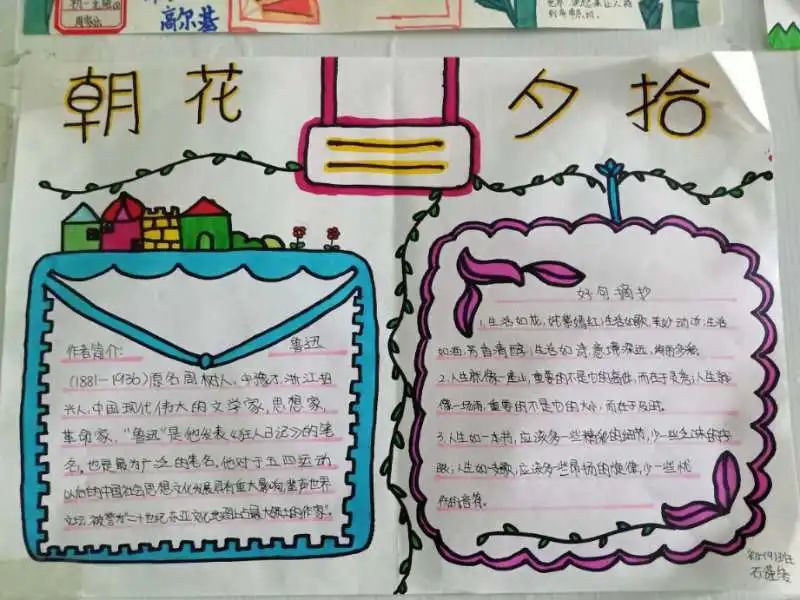 高尔基
朝花
夕拾
作者简介:
鲁迅
(1881-1936)原名周树人,字豫才,浙江绍
兴人,中国现代伟大的文学家,思想家,
革命家,"鲁迅"是他发表《狂人日记》的笔
名,也是最为广泛的笔名,他对于五四运动
以后的中国社会思想文化发展具有重大影响,蜚声世界
文坛,被誉为"二十世纪东亚文化地图上占最大领土的作家".
好句摘抄
1.生活如花,姹紫嫣红;生活如歌,美妙动听;生活
如酒,芳香清醇;生活如诗,意境深远,绚丽多彩。
2.人生就像一座山,重要的不是它的高低,而在于灵秀;人生就
像一场雨,重要的不是它的大小,而在于及时。
3.人生如一本书,应该多一些精彩的细节,少一些乏味的字
眼;人生如一支歌,应该多一些昂扬的旋律,少一些忧
伤的音符。